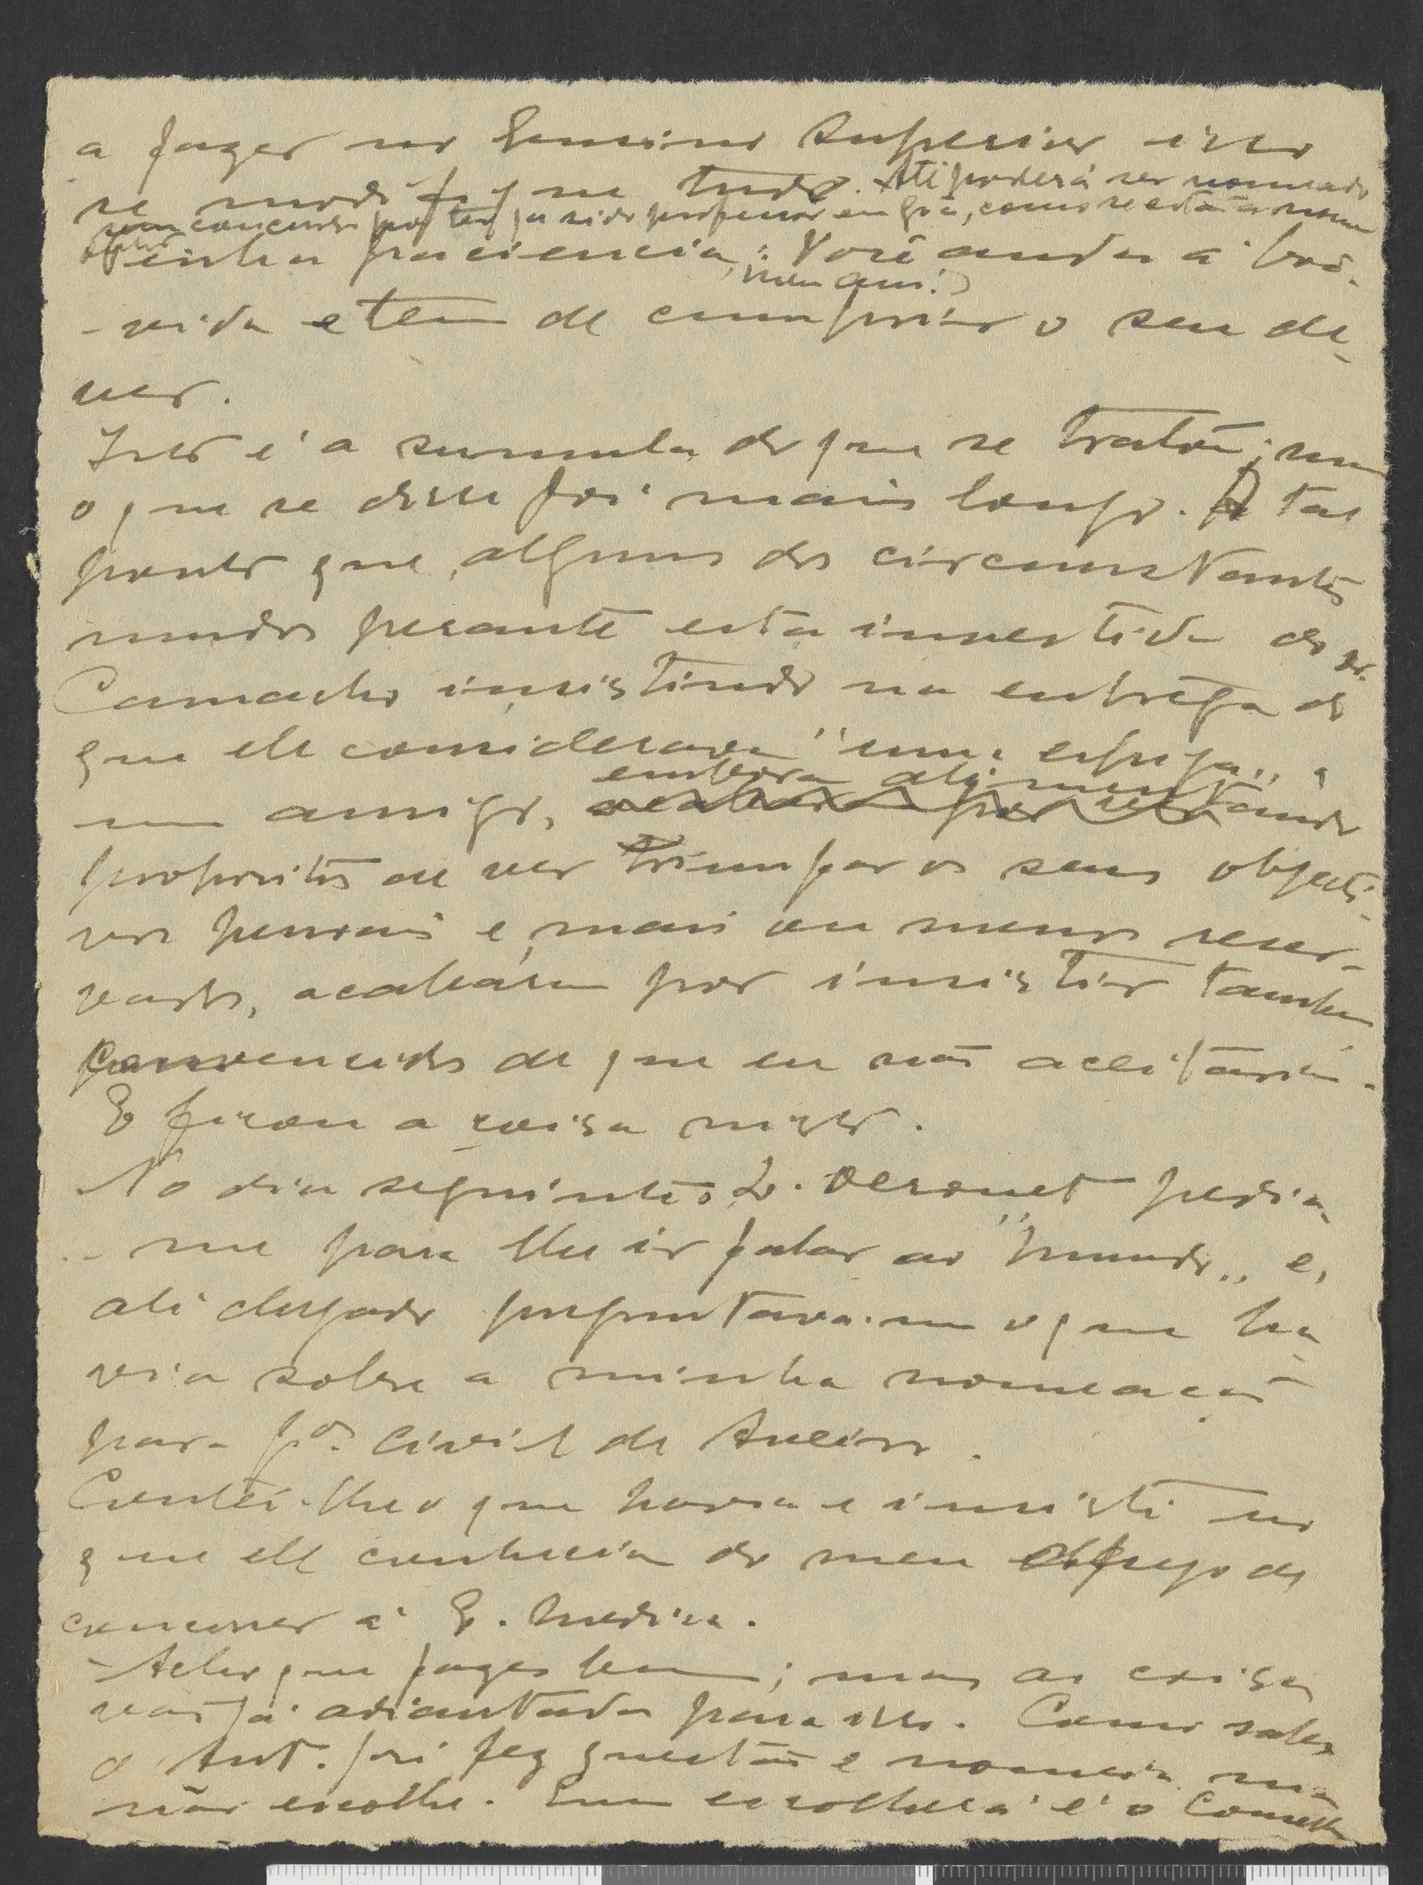 a fazer no Ensino Superior isso
se modifique tudo. Até poderá ser nomeado
sem concurso por ter já sido professor em Goa, como se está a
Tenha paciencia; Você anda á boa-
meu am.º)
-vida e tem de cumprir o seu de-
ver.
Isto é a summula do que se tratou; mas
o que se disse foi mais longo. A tal
ponto que, alguns dos circunstantes
mudos perante esta investida do Dr.
Camacho insistindo na entrega do
que ele considerava "uma espiga" a
um amigo, embora alimentando
propositos de ver triumfar os seus objecti-
vos pessoais e, mais ou menos reser-
vados, acabáram por insistir tambem
convencidos de que eu não aceitaria.
E ficou a coisa nisto.
No dia seguinte o L. Derouet pedia-
-me para lhe ir falar ao "Mundo" e,
ali chegado preguntava-me o que ha-
via sobre a minha nomeação
para g.or civil de Aveiro.
Contei-lhe o que havia e insisti no
que ele conhecia do meu desejo de
concorrer á E. Medica.
-Acho que fazes bem; mas as coisas
vão já adiantadas para isso. Como sabes
o Ant. José fez questão e nomeia mas
não escolhe. Quem escolherá é o Conselho